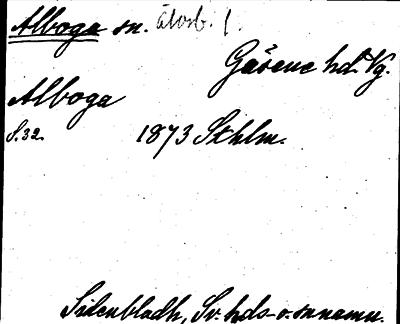 Alboga sn. älvsb. 1.
Gäsene hd. Vg.
Alboga
S. 32. 1873 Sthlm.
Sidenbladh, Sv. hds- o. snnamn.